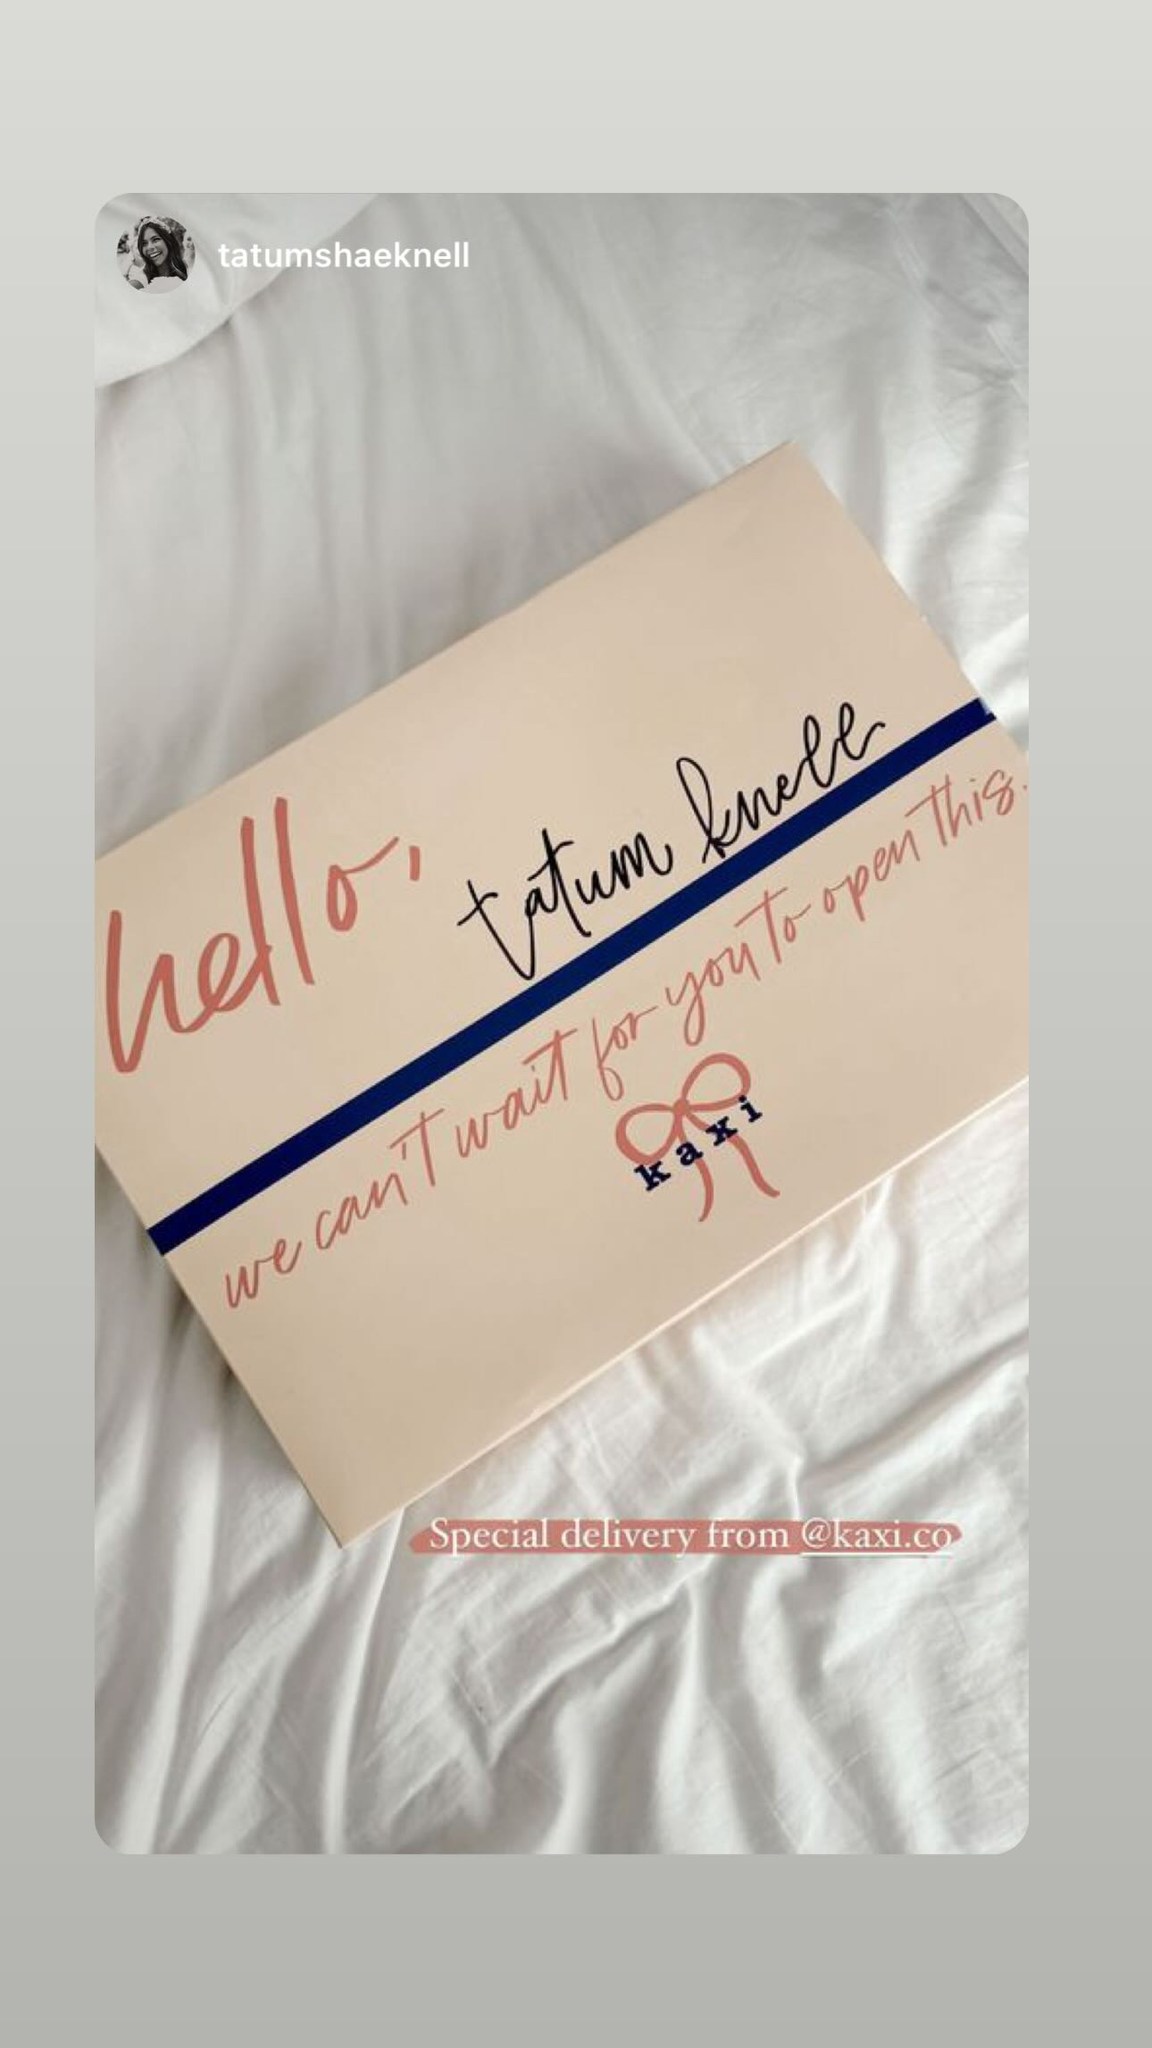 tatumshaeknell
hello,
tatum knell
we can't wait for you to open this.
kaxi
Special delivery from @kaxi.co